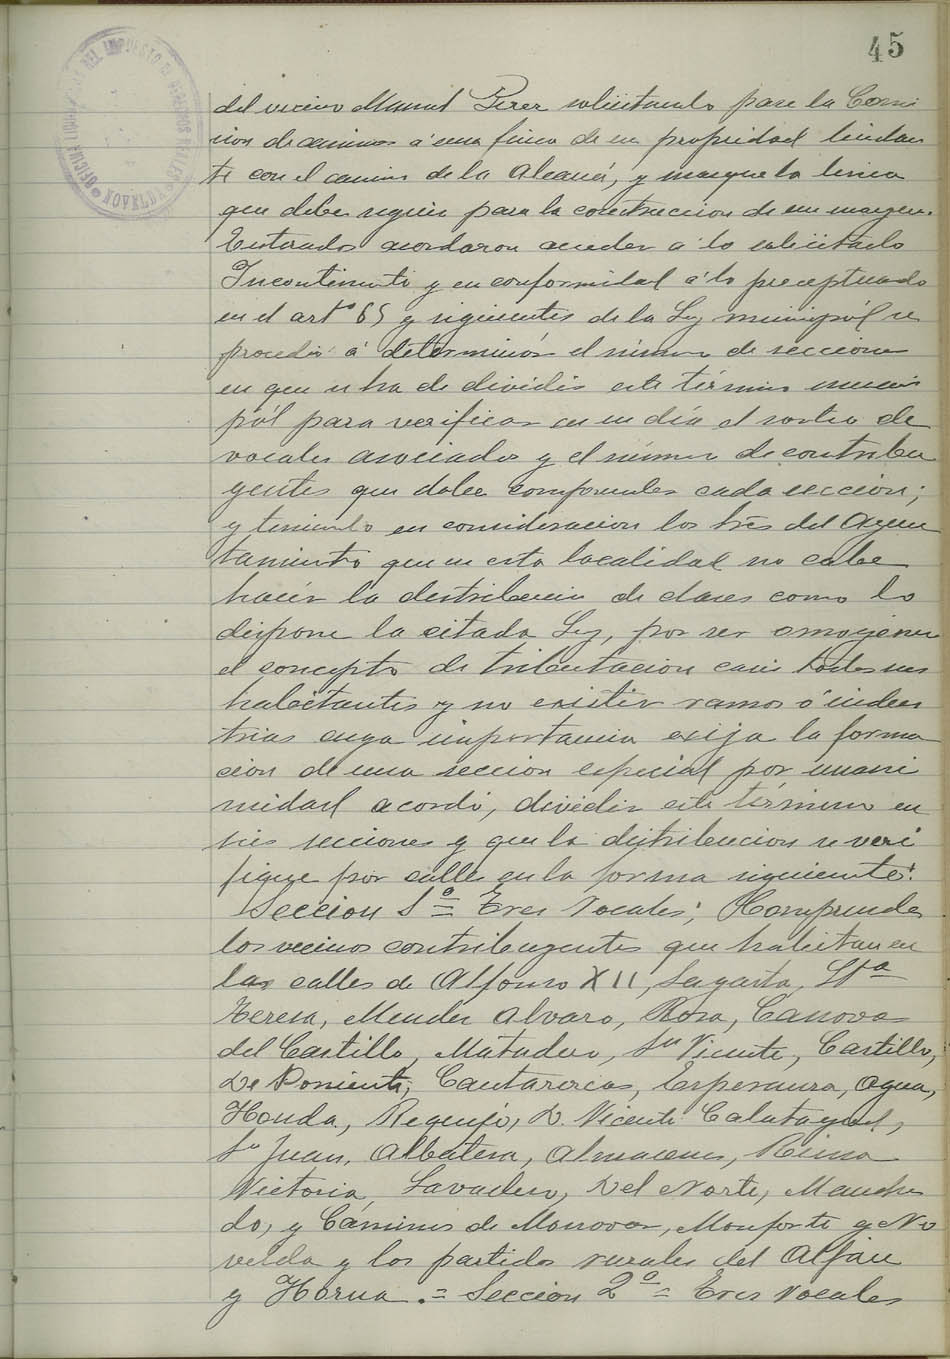 45
OFICINA LIQUIDADORA DEL IMPUESTO DE DERECHOS REALES
NOVELDA
del vecino Manuel Perez solicitando pase la Comi
sion de caminos a una finca de su propiedad lindan
te con el camino de la Alcaná, y marque la linea
que debe seguir para la construccion de un margen.
Enterados acordaron acceder a lo solicitado
Incontinenti y en conformidad a lo preceptuado
en el artº 65 y siguientes de la Ley municipál se
procedió á determinár el número de secciones
en que se ha de dividir este término munici
pál para verificar en su dia el sorteo de
vocales asociados y el número de contribu
yentes que debe comprender cada sección;
y teniendo en consideracion los tres del Ayun
tamiento que en esta localidad no cabe
hacér la distribucion de clases como lo
dispone la citada Ley, por ser omogéneo
el concepto de tributacion casi todos sus
habitantes y no existir ramos ó indus
trias cuya importancia exija la forma
cion de una seccion especial por unani
midad acordó, dividir este término en
seis secciones y que la distribucion se veri
fique por calles en la forma siguiente:
Seccion 1ª = Tres vocales; Comprende
los vecinos contribuyentes que habitan en
las calles de Alfonso XII, Sagasta, Stª
Teresa, Mendez Alvaro, Rosa, Canovas
del Castillo, Matadero, Sn Vicente, Castillo,
De Poniente, Cantarerias, Esperanza, Agua,
Honda, Requejo, D. Vicente Calatayud,
Sn Juan, Albatera, Almacenes, Reina
Victoria, Lavadero, Del Norte, Menchi
do, y Caminos de Monovar, Monforte y No
velda y los partidos rurales del Alfáu
y Horna. = Seccion 2ª = Tres vocales